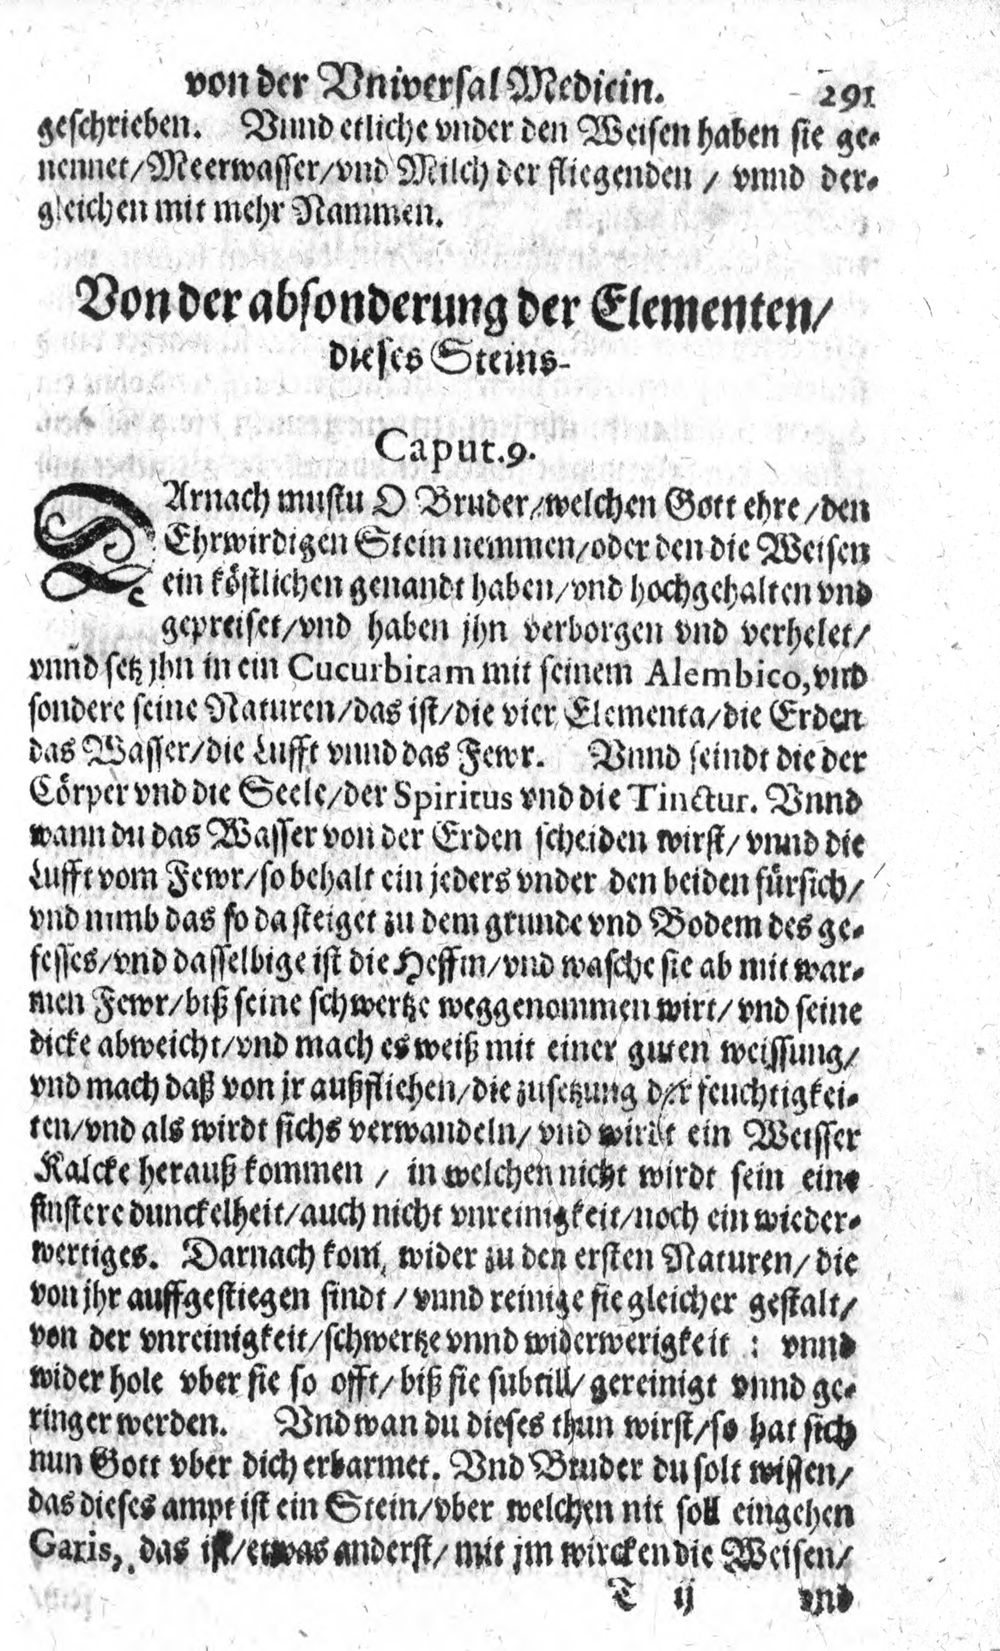 von der Vniversal Medicin. 291
geschrieben. Vnnd etliche vnder den Weisen haben sie ge-
nennet/Meerwasser/vnd Milch der fliegenden / vnnd der-
gleichen mit mehr Nammen.
Von der absonderung der Elementen/
dieses Steins-
Caput.9.
DArnach mustu O Bruder/welchen Gott ehre/den
Ehrwirdigen Stein nemmen/oder den die Weisen
ein köstlichen genandt haben/vnd hochgehalten vnd
gepreiset/vnd haben jhn verborgen vnd verhelet/
vnnd setz jhn in ein Cucurbitam mit seinem Alembico,vnd
sondere seine Naturen/das ist/die vier Elementa/die Erden
das Wasser/die Lufft vnnd das Fewr. Vnnd seindt die der
Cörper vnd die Seele/der Spiritus vnd die Tinctur. Vnnd
wann du das Wasser von der Erden scheiden wirst/ vnnd die
Lufft vom Fewr/so behalt ein jeders vnder den beiden fürsich/
vnd nimb das so da steiget zu dem grunde vnd Bodem des ge-
fesses/vnd dasselbige ist die Heffin/vnd wasche sie ab mit war-
men Fewr/biß seine schwertze weggenommen wirt/vnd seine
dicke abweicht/vnd mach es weiß mit einer guten weissung/
vnd mach daß von jr außfliehen/die zusetzung der feuchtigkei-
ten/vnd als wirdt sichs verwandeln/vnd wirdt ein Weisser
Kalcke herauß kommen / in welchen nicht wirdt sein eine
finstere dunckelheit/auch nicht vnreinigkeit/noch ein wieder-
wertiges. Darnach kom wider zu den ersten Naturen/die
von jhr auffgestiegen sindt / vnnd reinige sie gleicher gestalt/
von der vnreinigkeit/schwertze vnnd widerwerigkeit : vnnd
wider hole vber sie so offt/biß sie subtill/gereinigt vnnd ge-
ringer werden. Vnd wan du dieses thun wirst/so hat sich
nun Gott vber dich erbarmet. Vnd Bruder du solt wissen/
das dieses ampt ist ein Stein/vber welchen nit soll eingehen
Garis, das ist/etwas anderst/ mit jm wircken die Weisen/
T ij vnd